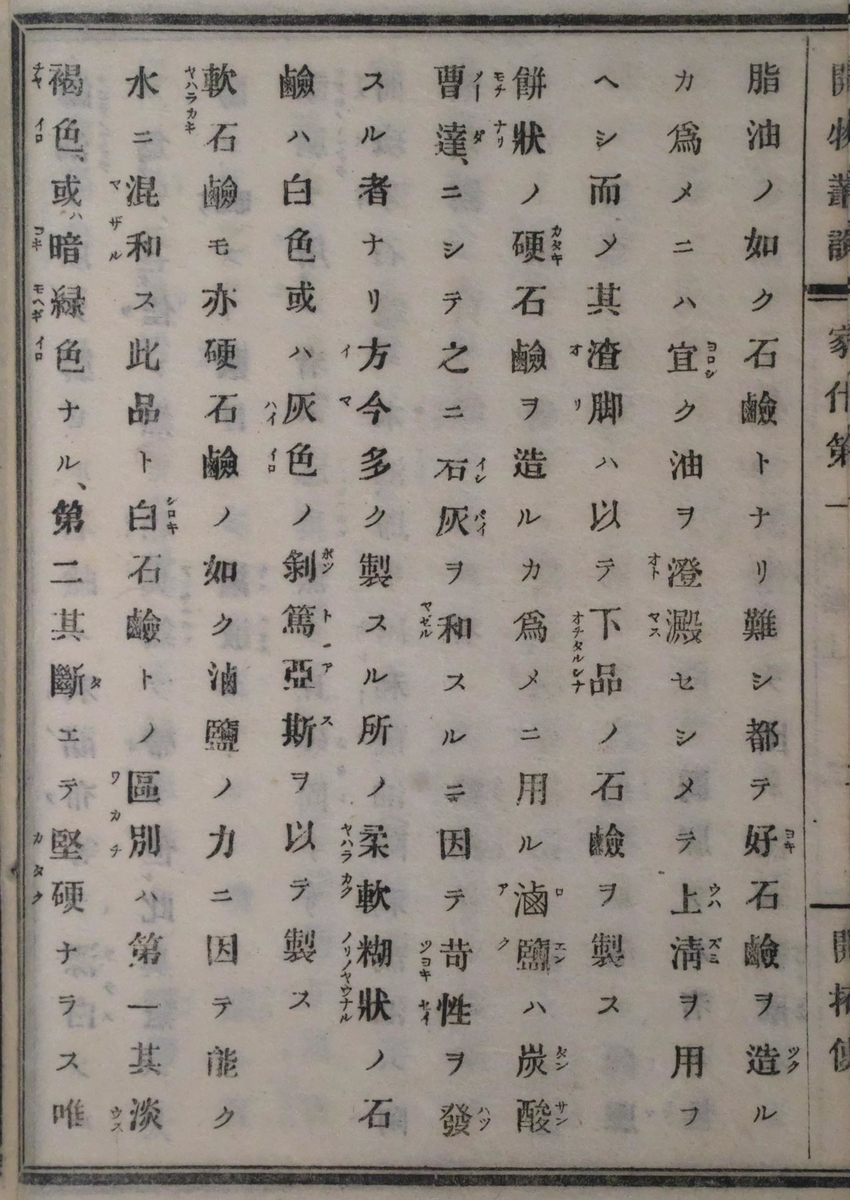 脂油ノ如ク石鹼トナリ難シ都テ好石鹼ヲ造ル
カ爲メニハ宜ク油ヲ澄澱セシメテ上淸ヲ用フ
ヘシ而メ其渣脚ハ以テ下品ノ石鹼ヲ製ス
餠狀ノ硬石鹼ヲ造ルカ爲メニ用ル滷鹽ハ炭酸
曹達、ニシテ之ニ石灰ヲ和スルニ因テ苛性ヲ發
スル者ナリ方今多ク製スル所ノ柔軟糊狀ノ石
鹼ハ白色或ハ灰色ノ剝篤亞斯ヲ以テ製ス
軟石鹼モ亦硬石鹼ノ如ク滷鹽ノ力ニ因テ能ク
水ニ混和ス此品ト白石鹼トノ區別ハ第一其淡
褐色、或ハ暗綠色ナル、第二其斷エテ堅硬ナラス唯